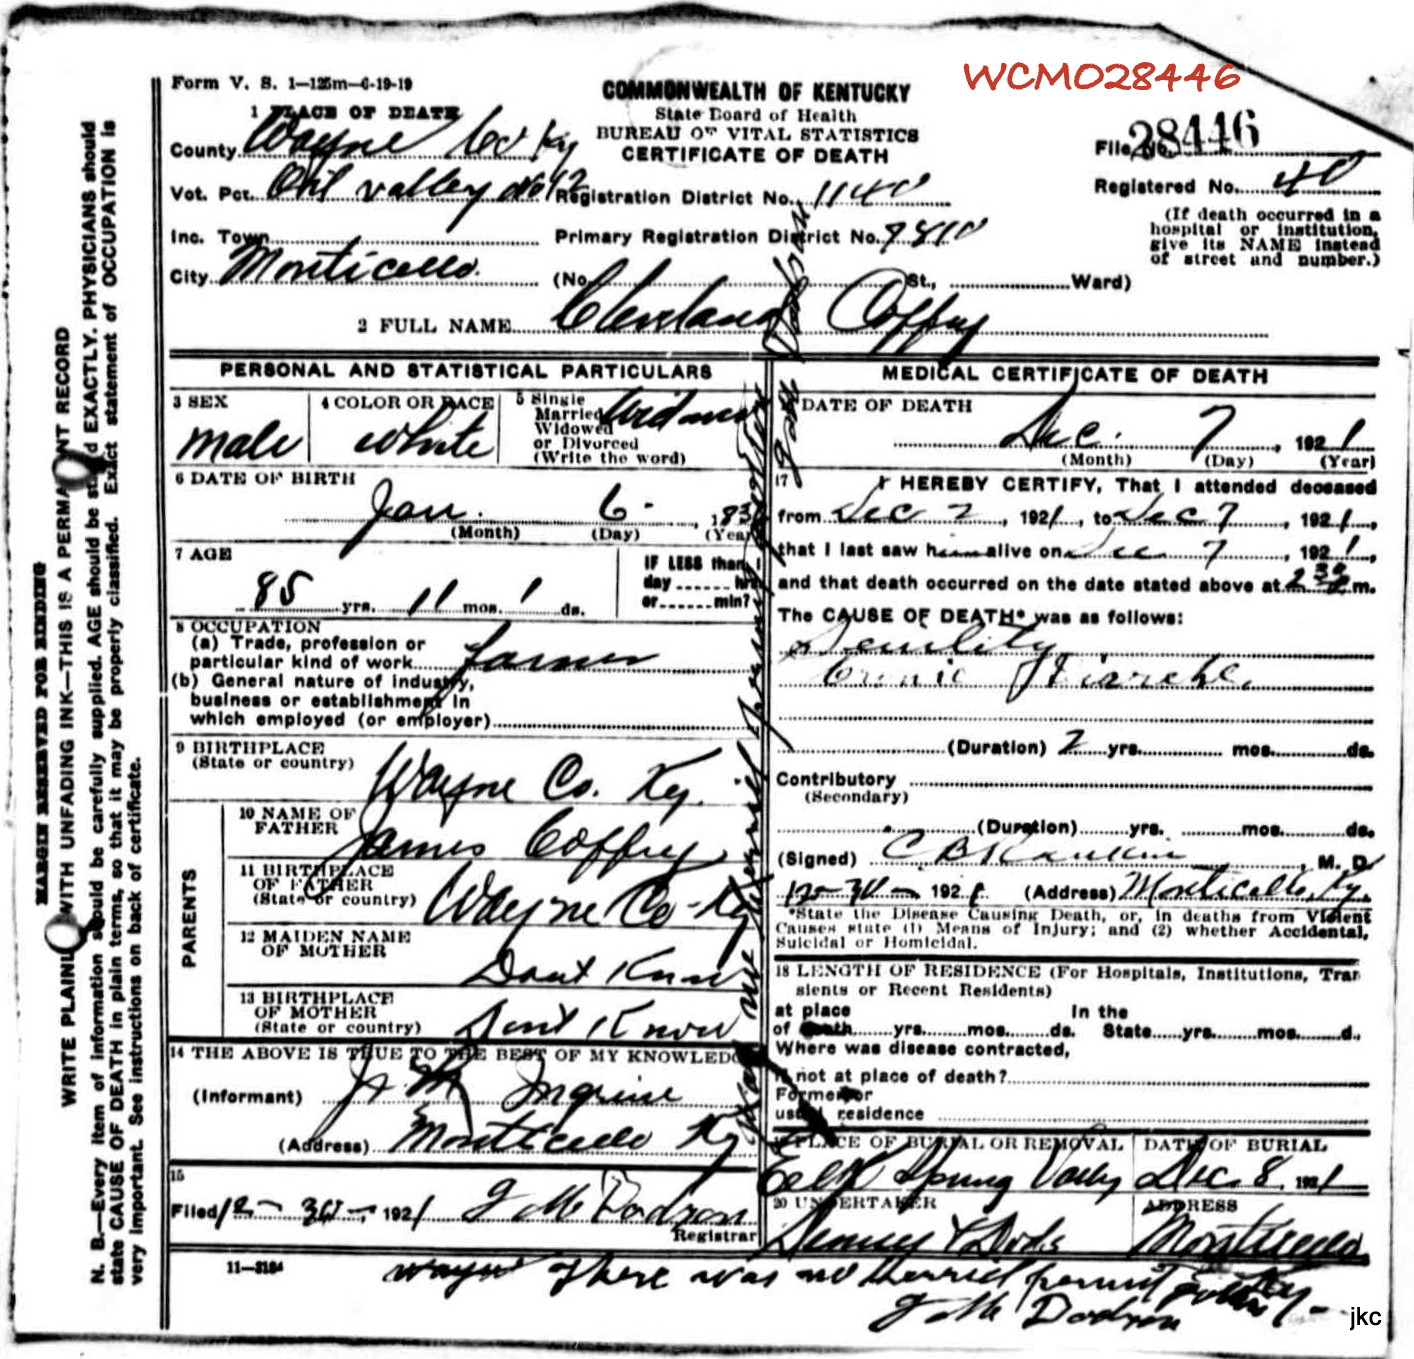 WCMO28446
Form V. S. 1—125m—6-19-19
COMMONWEALTH OF KENTUCKY
State Board of Health
BUREAU OF VITAL STATISTICS
CERTIFICATE OF DEATH
28446
File No.
Registered No. 40
(If death occurred in a
hospital or institution,
give its NAME instead
of street and number.)
1 PLACE OF DEATH
County Wayne Co Ky
Vot. Pct. Oil valley No 12 Registration District No. 1140
Inc. Town Primary Registration District No. 9810
City Monticello. (No. St., Ward)
2 FULL NAME Cleveland Coffey
PERSONAL AND STATISTICAL PARTICULARS
3 SEX
male
4 COLOR OR RACE
white
5 Single
Married
Widowed
or Divorced
(Write the word)
6 DATE OF BIRTH
Jan. 6 183
(Month) (Day) (Year)
7 AGE
85 yrs. 11 mos. 1 ds.
IF LESS than 1
day hrs
or min?
8 OCCUPATION
(a) Trade, profession or
particular kind of work farmer
(b) General nature of industry,
business or establishment in
which employed (or employer)
9 BIRTHPLACE
(State or country)
Wayne Co. Ky.
PARENTS
10 NAME OF
FATHER
James Coffey
11 BIRTHPLACE
OF FATHER
(State or country) Wayne Co - Ky
12 MAIDEN NAME
OF MOTHER
Dont Know
13 BIRTHPLACE
OF MOTHER
(State or country) Dont Know
14 THE ABOVE IS TRUE TO THE BEST OF MY KNOWLEDG
(Informant)
(Address) Monticello Ky
15
Filed 12 - 30 - 1921 J M Dodson
Registrar
11—3184
MEDICAL CERTIFICATE OF DEATH
DATE OF DEATH
Dec. 7, 1921
(Month) (Day) (Year)
17 I HEREBY CERTIFY, That I attended deceased
from Dec 2, 1921, to Dec 7, 1921,
that I last saw him alive on Dec 7, 1921,
and that death occurred on the date stated above at 2 30 m.
The CAUSE OF DEATH* was as follows:
(Duration) 2 yrs. mos. ds.
Contributory
(Secondary)
(Duration) yrs. mos. ds.
(Signed) C B Rankin, M. D.
12-30-1921 (Address) Monticello, Ky.
*State the Disease Causing Death, or, in deaths from Violent
Causes state (1) Means of Injury; and (2) whether Accidental,
Suicidal or Homicidal.
18 LENGTH OF RESIDENCE (For Hospitals, Institutions, Tran
sients or Recent Residents)
at place In the
of death yrs. mos. ds. State yrs. mos. d.
Where was disease contracted,
if not at place of death?
Former or
usual residence
PLACE OF BURIAL OR REMOVAL
Spring Valley
DATE OF BURIAL
Dec. 8. 1921
20 UNDERTAKER
ADDRESS
Monticello
There was no permit
J M Dodson
jkc
MARGIN RESERVED FOR BINDING
WRITE PLAINLY WITH UNFADING INK—THIS IS A PERMANENT RECORD
N. B.—Every item of information should be carefully supplied. AGE should be stated EXACTLY. PHYSICIANS should
state CAUSE OF DEATH in plain terms, so that it may be properly classified. Exact statement of OCCUPATION is
very important. See instructions on back of certificate.